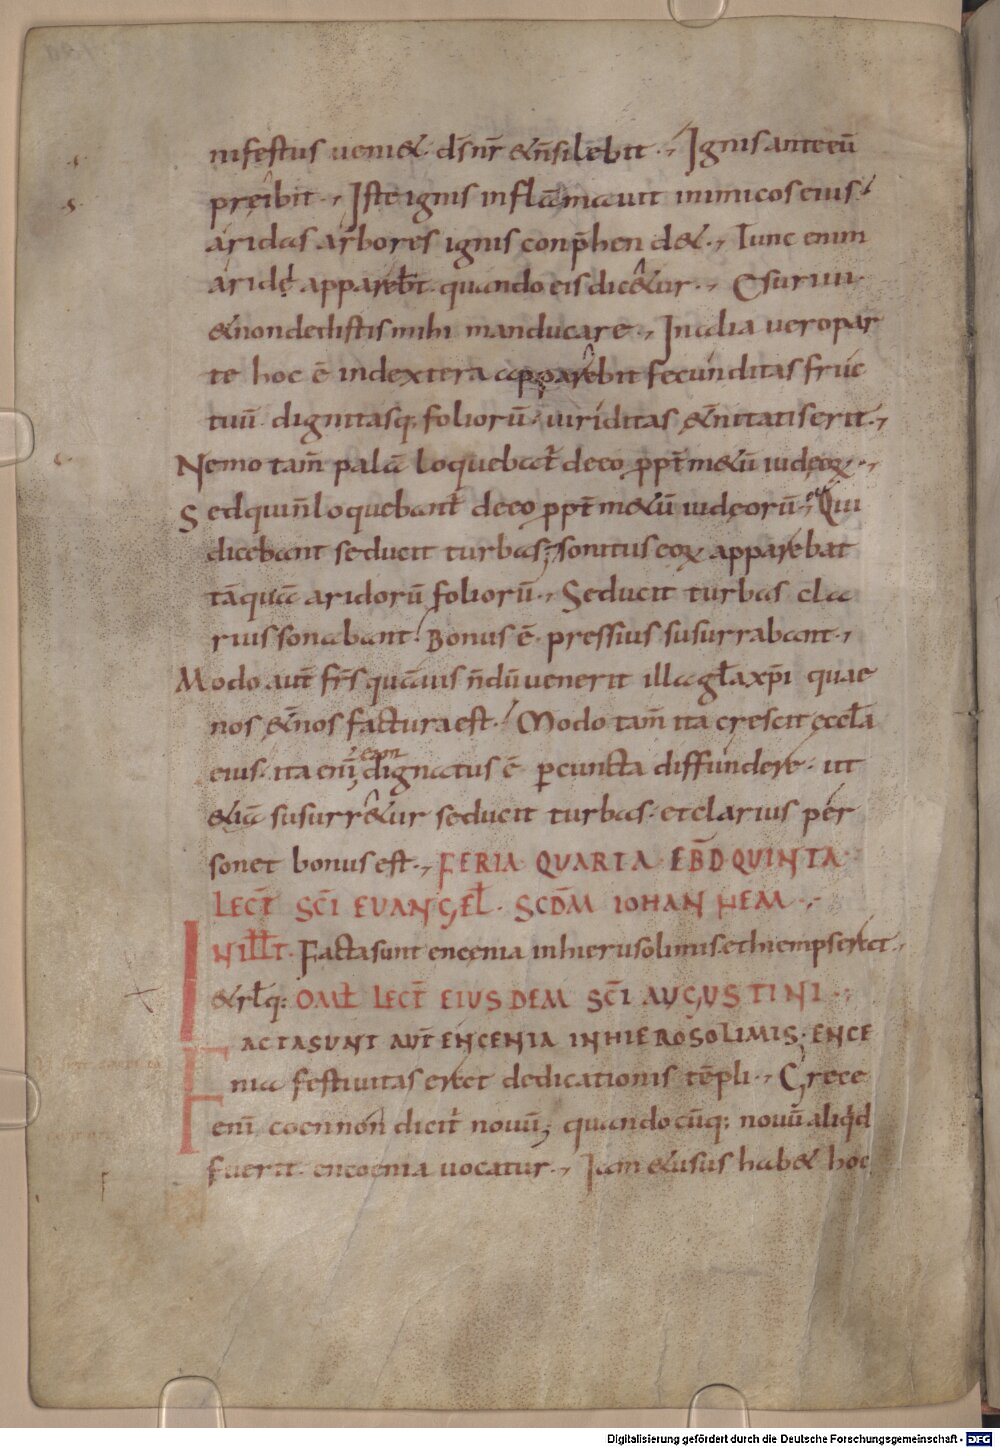 nifestus ueni&. dn̄s nr̄ &n̄silebit., Ignis ante eū
pręibit., Iste ignis inflāmauit inimicos eius.
aridas arbores ignis conp̄hend&., Tunc enim
aridę apparebt̄. quando eis dic&ur., Esuriui
& non dedistis mihi manducare., In alia uero par
te hoc ē in dextera apparebit fecunditas fruc
tuū. dignitasq; foliorū. uiriditas &n̄itatis erit.,
Nemo tam̄ palā loquebat̄ de eo ppt̄ m&ū iudeoꝝ.,
Sed qui n̄ loquebant̄ de eo ppt̄ m&ū iudęorū., Qui
dicebant seducit turbas; sonitus eoꝝ apparebat
tāquā aridorū foliorū., Seducit turbas cla
rius sonabant. Bonus ē. pressius susurrabant.,
Modo aut̄ frs̄ quāuis n̄dū uenerit illa gl̄a xp̄i quae
nos &n̄os factura est. Modo tam̄ ita crescit eccl̄a
eius. ita enī eam dignatus ē p cuncta diffundere. ut
&iā susurr&ur seducit turbas. et clarius per
sonet bonus est., FERIA QUARTA EBD̄ QUINTA
LECT̄ SC̄I EUANGEL̄. SCDM̄ IOHANNEM.,
IN ILL̄T. Facta sunt encenia in hierusolimis. et hiemps erat.,
& rl̄q: OML̄ LECT̄ EIUSDEM SC̄I AUGUSTINI.,
FACTA SUNT AUT̄ ENCENIA IN HIEROSOLIMIS. ENCE
nia festiuitas erat dedicationis tēpli., Grece
enī coennon dicit̄ nouū; quandocūq; nouū aliqd
fuerit. encoenia uocatur., Iam & usus hab& hoc
Digitalisierung gefördert durch die Deutsche Forschungsgemeinschaft - DFG